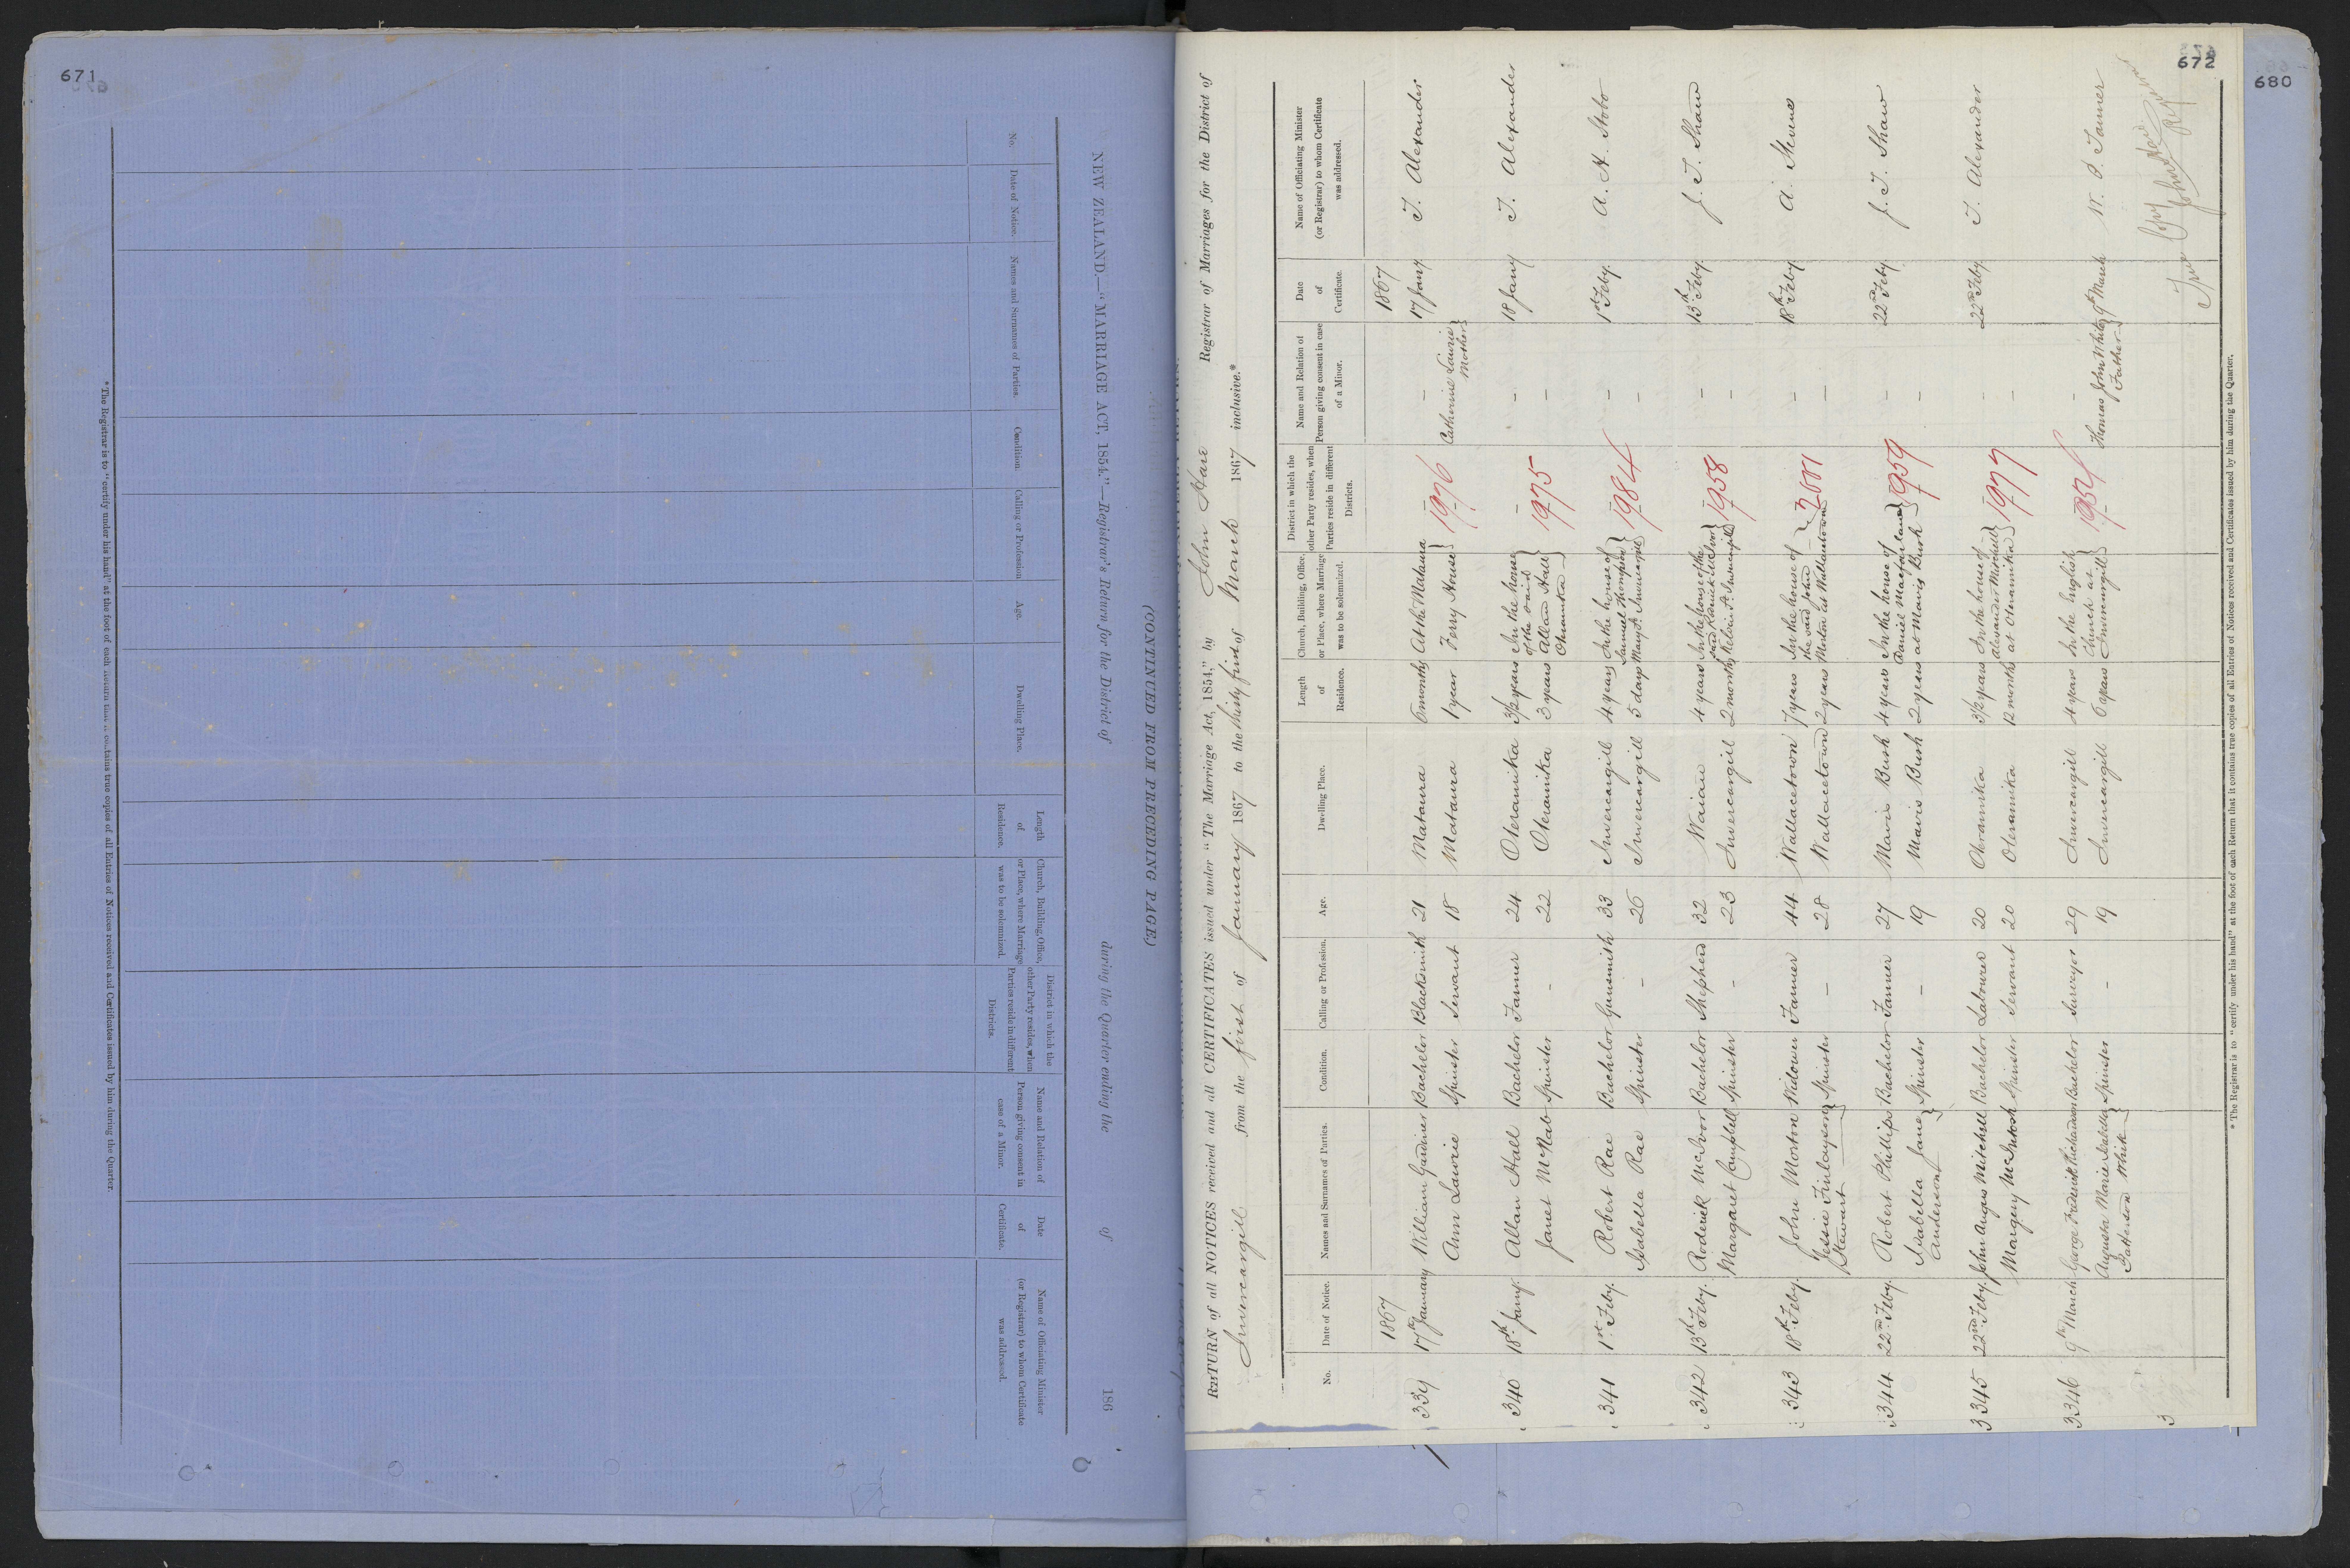 671
NEW ZEALAND.—"MARRIAGE ACT, 1854."—Registrar's Return for the District of during the Quarter ending the of 186
(CONTINUED FROM PRECEDING PAGE)
No.
Date of Notice.
Names and Surnames of Parties.
Condition.
Calling or Profession
Age.
Dwelling Place.
Length of Residence.
Church, Building, Office, or Place, where Marriage was to be solemnized.
District in which the other Party resides, when Parties reside in different Districts.
Name and Relation of Person giving consent in case of a Minor.
Date of Certificate.
Name of Officiating Minister (or Registrar) to whom Certificate was addressed.
*The Registrar is to "certify under his hand" at the foot of each Return that it contains true copies of all Entries of Notices received and Certificates issued by him during the Quarter.
672
680
RETURN of all NOTICES received and all CERTIFICATES issued under "The Marriage Act, 1854," by John Hare Registrar of Marriages for the District of
Invercargill from the first of January 1867 to the thirty first of March 1867 inclusive.*
No.
Date of Notice.
Names and Surnames of Parties.
Condition.
Calling or Profession.
Age.
Dwelling Place.
Length of Residence.
Church, Building, Office, or Place, where Marriage was to be solemnized.
District in which the other Party resides, when Parties reside in different Districts.
Name and Relation of Person giving consent in case of a Minor.
Date of Certificate.
Name of Officiating Minister (or Registrar) to whom Certificate was addressed.
1867 1867
339 17th January William Gardiner Bachelor Blacksmith 21 Mataura 6 months At the Mataura – 17 Jany. T. Alexander
Ann Lawrie Spinster Servant 18 Mataura 1 year Ferry House 1976 Catherine Lawrie Mother
340 18th Jany. Allan Hall Bachelor Farmer 24 Oteramika 3½ years In the house of the said – 18 Jany T. Alexander
Janet McNab Spinster – 22 Oteramika 3 years Allan Hall Oteramika 1975 –
341 1st Feby. Robert Rae Bachelor Gunsmith 33 Invercargill 4 years In the house of Samuel Thompson – 1st Feby. A. H. Stobo
Isabella Rae Spinster – 26 Invercargill 5 days May St. Invercargill 1984 –
342 13th Feby. Roderick McIvor Bachelor Shepherd 32 Waiau 4 years In the house of the said Roderick McIvor – 13th Feby. J. T. Shaw
Margaret Campbell Spinster – 23 Invercargill 2 months Kelvin St. Invercargill 1958 –
343 18th Feby. John Morton Widower Farmer 44 Wallacetown 7 years In the house of the said John – 18th Feby. A. Stevens
Jessie Finlayson Stewart Spinster – 28 Wallacetown 2 years Morton at Wallacetown –
344 22nd Feby. Robert Phillips Bachelor Farmer 27 Mavis Bush 4 years In the house of Daniel Macfarlane – 22nd Feby. J. T. Shaw
Isabella Jane Anderson Spinster – 19 Mavis Bush 2 years at Mavis Bush 1959 –
345 22nd Feby. John Angus Mitchell Bachelor Labourer 20 Oteramika 3½ years In the house of Alexander Mitchell – 22nd Feby. T. Alexander
Margery McIntosh Spinster Servant 20 Oteramika 12 months at Oteramika 1977 –
346 9th March George Frederick Richardson Bachelor Surveyor 29 Invercargill 4 years In the English Church at – 9th March W. P. Tanner
Augusta Marie Isabella Patterson White Spinster – 19 Invercargill 6 years Invercargill Thomas John White Father
True Copy
John Hare
Registrar
* The Registrar is to "certify under his hand" at the foot of each Return that it contains true copies of all Entries of Notices received and Certificates issued by him during the Quarter.